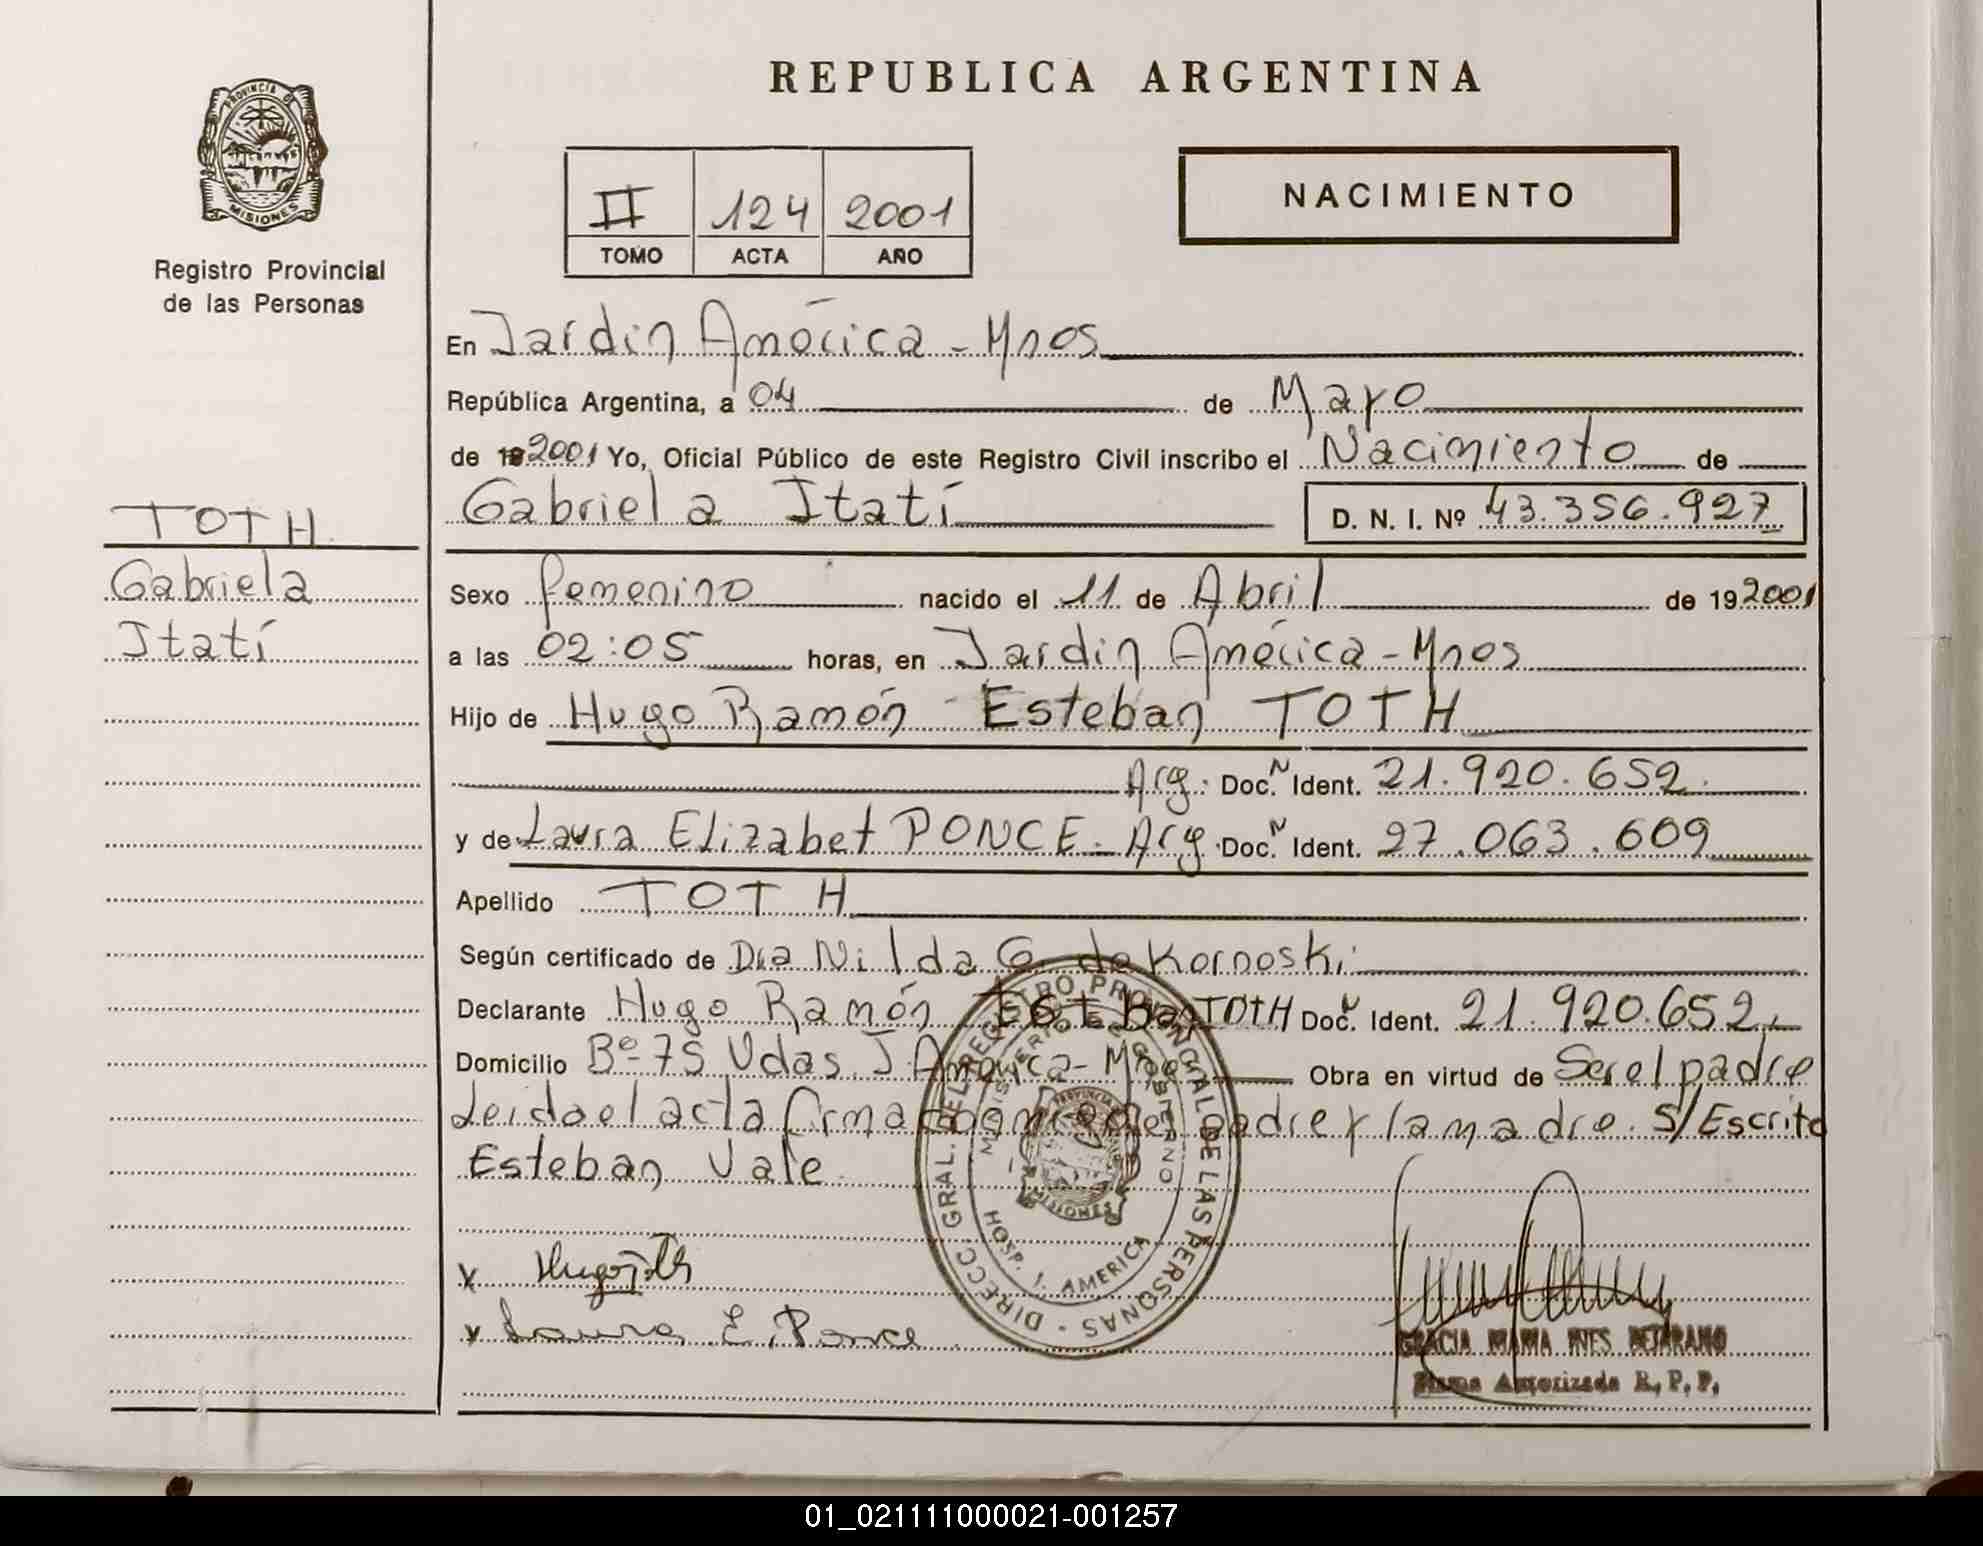 REPUBLICA ARGENTINA
PROVINCIA DE
MISIONES
Registro Provincial
de las Personas
II 124 2001
TOMO ACTA AÑO
NACIMIENTO
En Jardín América - Mnes
República Argentina, a 04 de Mayo
de 19 2001 Yo, Oficial Público de este Registro Civil inscribo el Nacimiento de
Gabriela Itatí D. N. I. Nº 43.356.927
TOTH
Gabriela
Itatí
Sexo femenino nacido el 11 de Abril de 19 2001
a las 02:05 horas, en Jardín América - Mnes
Hijo de Hugo Ramón Esteban TOTH
Arg. Doc. N Ident. 21.920.652.
y de Laura Elizabet PONCE - Arg. Doc. N Ident. 27.063.609
Apellido TOTH
Según certificado de Dra Nilda G. de Kornoski
Declarante Hugo Ramón Esteban TOTH Doc. N Ident. 21.920.652
Domicilio Bº 75 Vdas. J. América - Mnes Obra en virtud de Ser el padre
Leida el acta firma conmigo el padre y la madre. S/Escrito
Esteban Vale.
x Hugo Toth
x Laura E. Ponce
DIRECC. GRAL. DEL REGISTRO PROVINCIAL DE LAS PERSONAS
MINISTERIO DE GOBIERNO
PROVINCIA DE
MISIONES
HOSP. J. AMERICA
GRACIA MARIA INES BEJARANO
Firma Autorizada R. P. P.
01_021111000021-001257